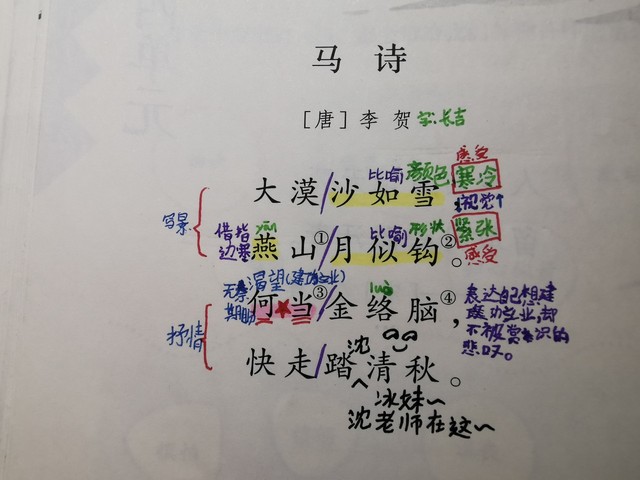 马诗
[唐]李贺 字:长吉
感受
比喻 颜色 寒冷
大漠/沙如雪
视觉↑
写景 借指边塞 yān 比喻 形状 紧张
燕山①/月似钩②。
感受
渴望(建功立业)
luò
何当③/金络脑④,
表达自己想建
功立业,却
不被赏识的
悲叹。
抒情
沈
快走/踏清秋。
冰妹~
沈老师在这~